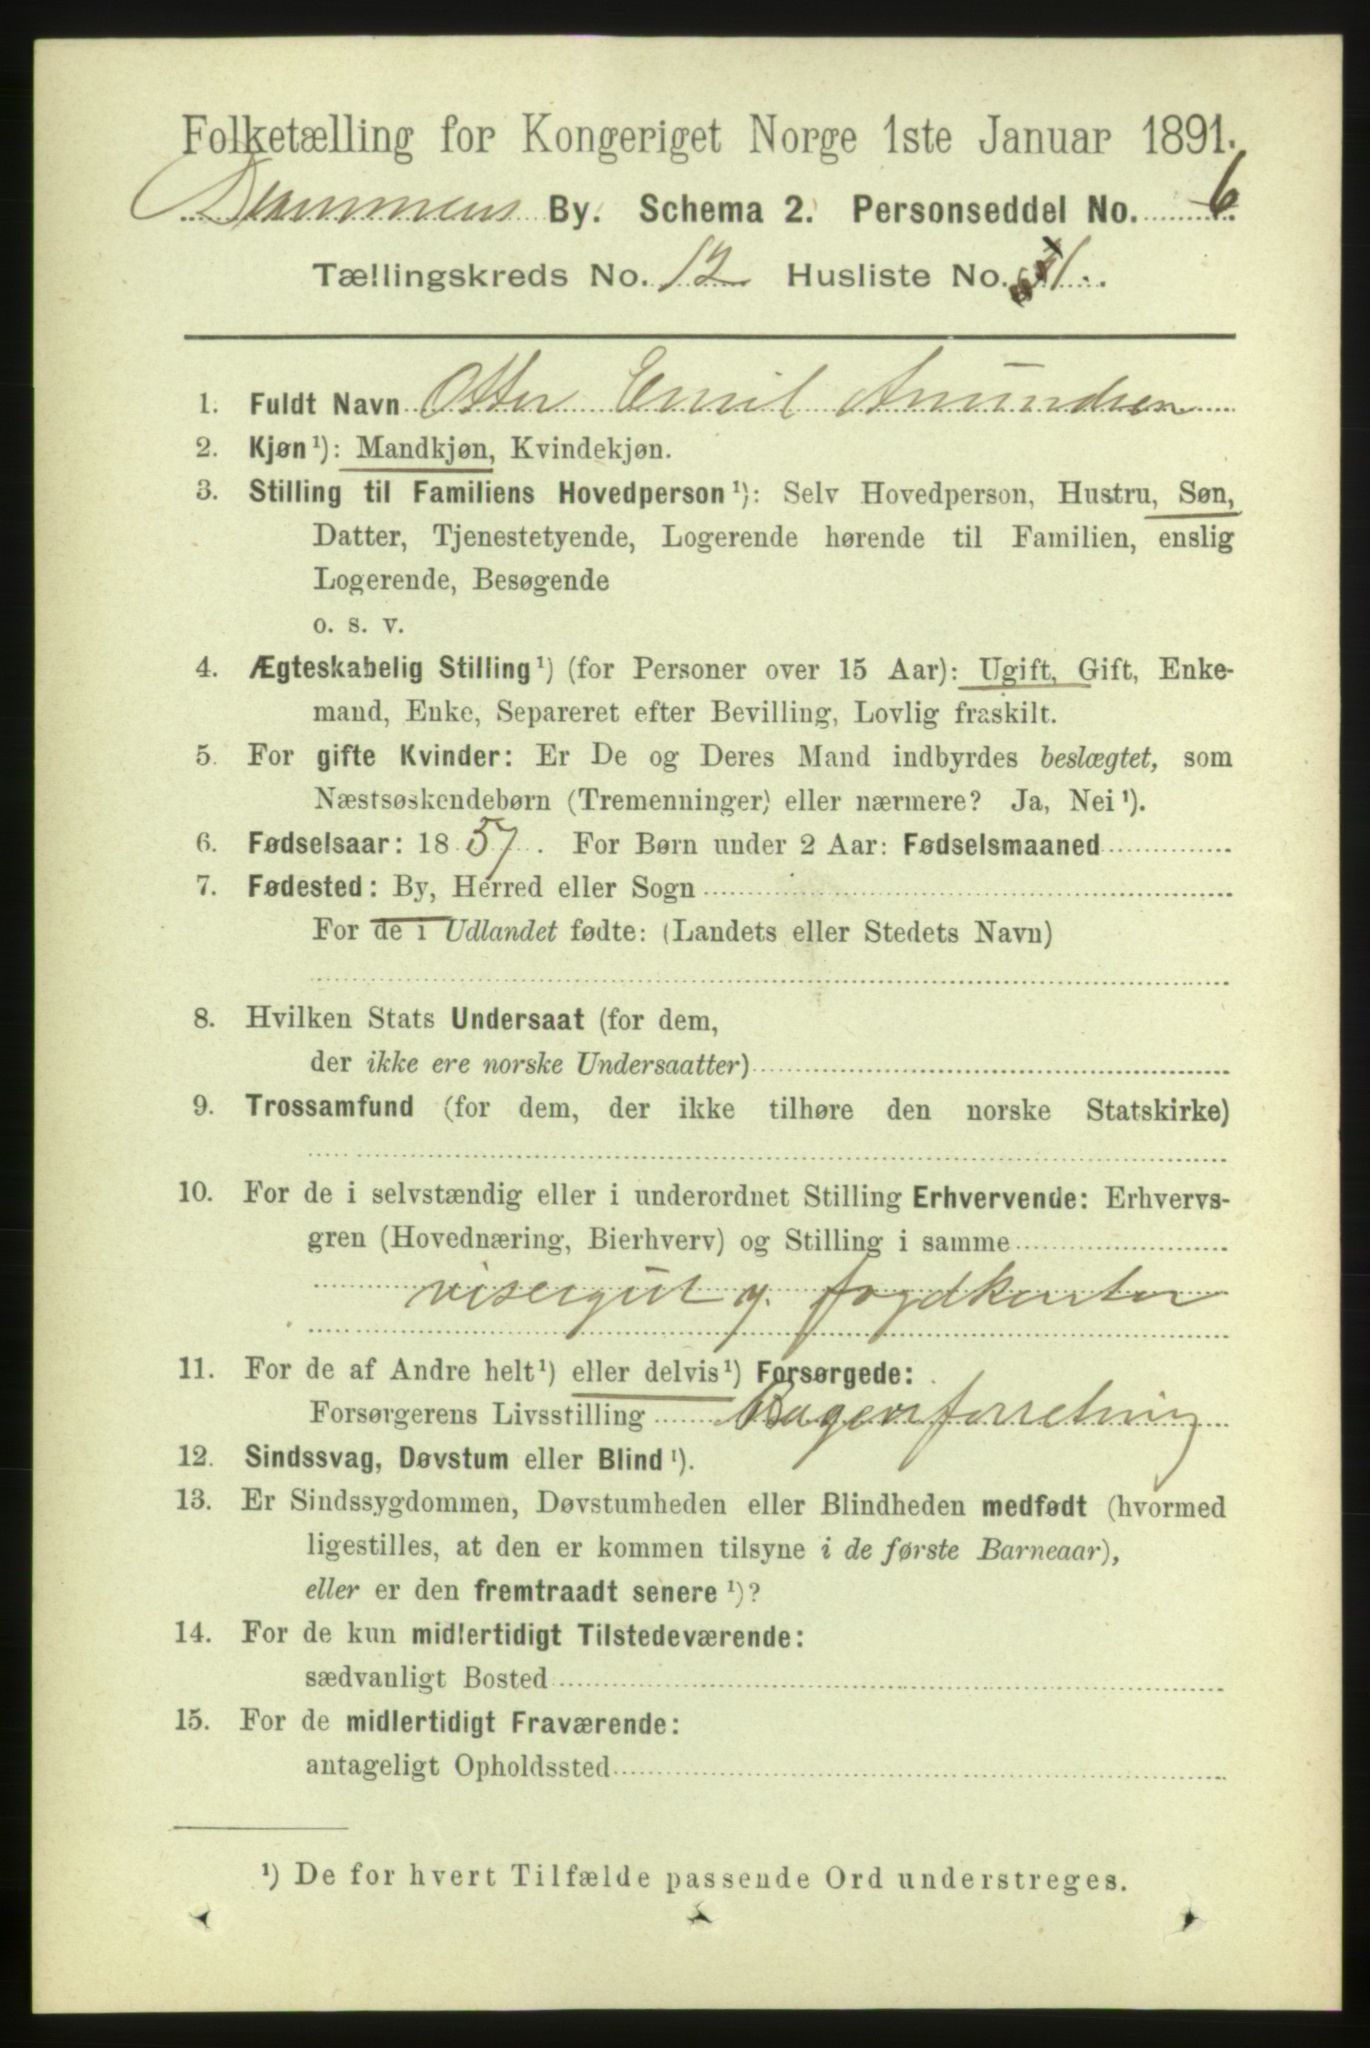 Folketælling for Kongeriget Norge 1ste Januar 1891.
Drammens By. Schema 2. Personseddel No. 6.
Tællingskreds No. 12 Husliste No. 1.
1. Fuldt Navn Otter Emil Amundsen
2. Kjøn¹): Mandkjøn, Kvindekjøn.
3. Stilling til Familiens Hovedperson¹): Selv Hovedperson, Hustru, Søn,
Datter, Tjenestetyende, Logerende hørende til Familien, enslig
Logerende, Besøgende
o. s. v.
4. Ægteskabelig Stilling¹) (for Personer over 15 Aar): Ugift, Gift, Enke-
mand, Enke, Separeret efter Bevilling, Lovlig fraskilt.
5. For gifte Kvinder: Er De og Deres Mand indbyrdes beslægtet, som
Næstsøskendebørn (Tremenninger) eller nærmere? Ja, Nei¹).
6. Fødselsaar: 1857. For Børn under 2 Aar: Fødselsmaaned
7. Fødested: By, Herred eller Sogn
For de i Udlandet fødte: (Landets eller Stedets Navn)
8. Hvilken Stats Undersaat (for dem,
der ikke ere norske Undersaatter)
9. Trossamfund (for dem, der ikke tilhøre den norske Statskirke)
10. For de i selvstændig eller i underordnet Stilling Erhvervende: Erhvervs-
gren (Hovednæring, Bierhverv) og Stilling i samme
visergut fogdkontor
11. For de af Andre helt¹) eller delvis¹) Forsørgede:
Forsørgerens Livsstilling Bagerforretning
12. Sindssvag, Døvstum eller Blind¹).
13. Er Sindssygdommen, Døvstumheden eller Blindheden medfødt (hvormed
ligestilles, at den er kommen tilsyne i de første Barneaar),
eller er den fremtraadt senere¹)?
14. For de kun midlertidigt Tilstedeværende:
sædvanligt Bosted
15. For de midlertidigt Fraværende:
antageligt Opholdssted
¹) De for hvert Tilfælde passende Ord understreges.